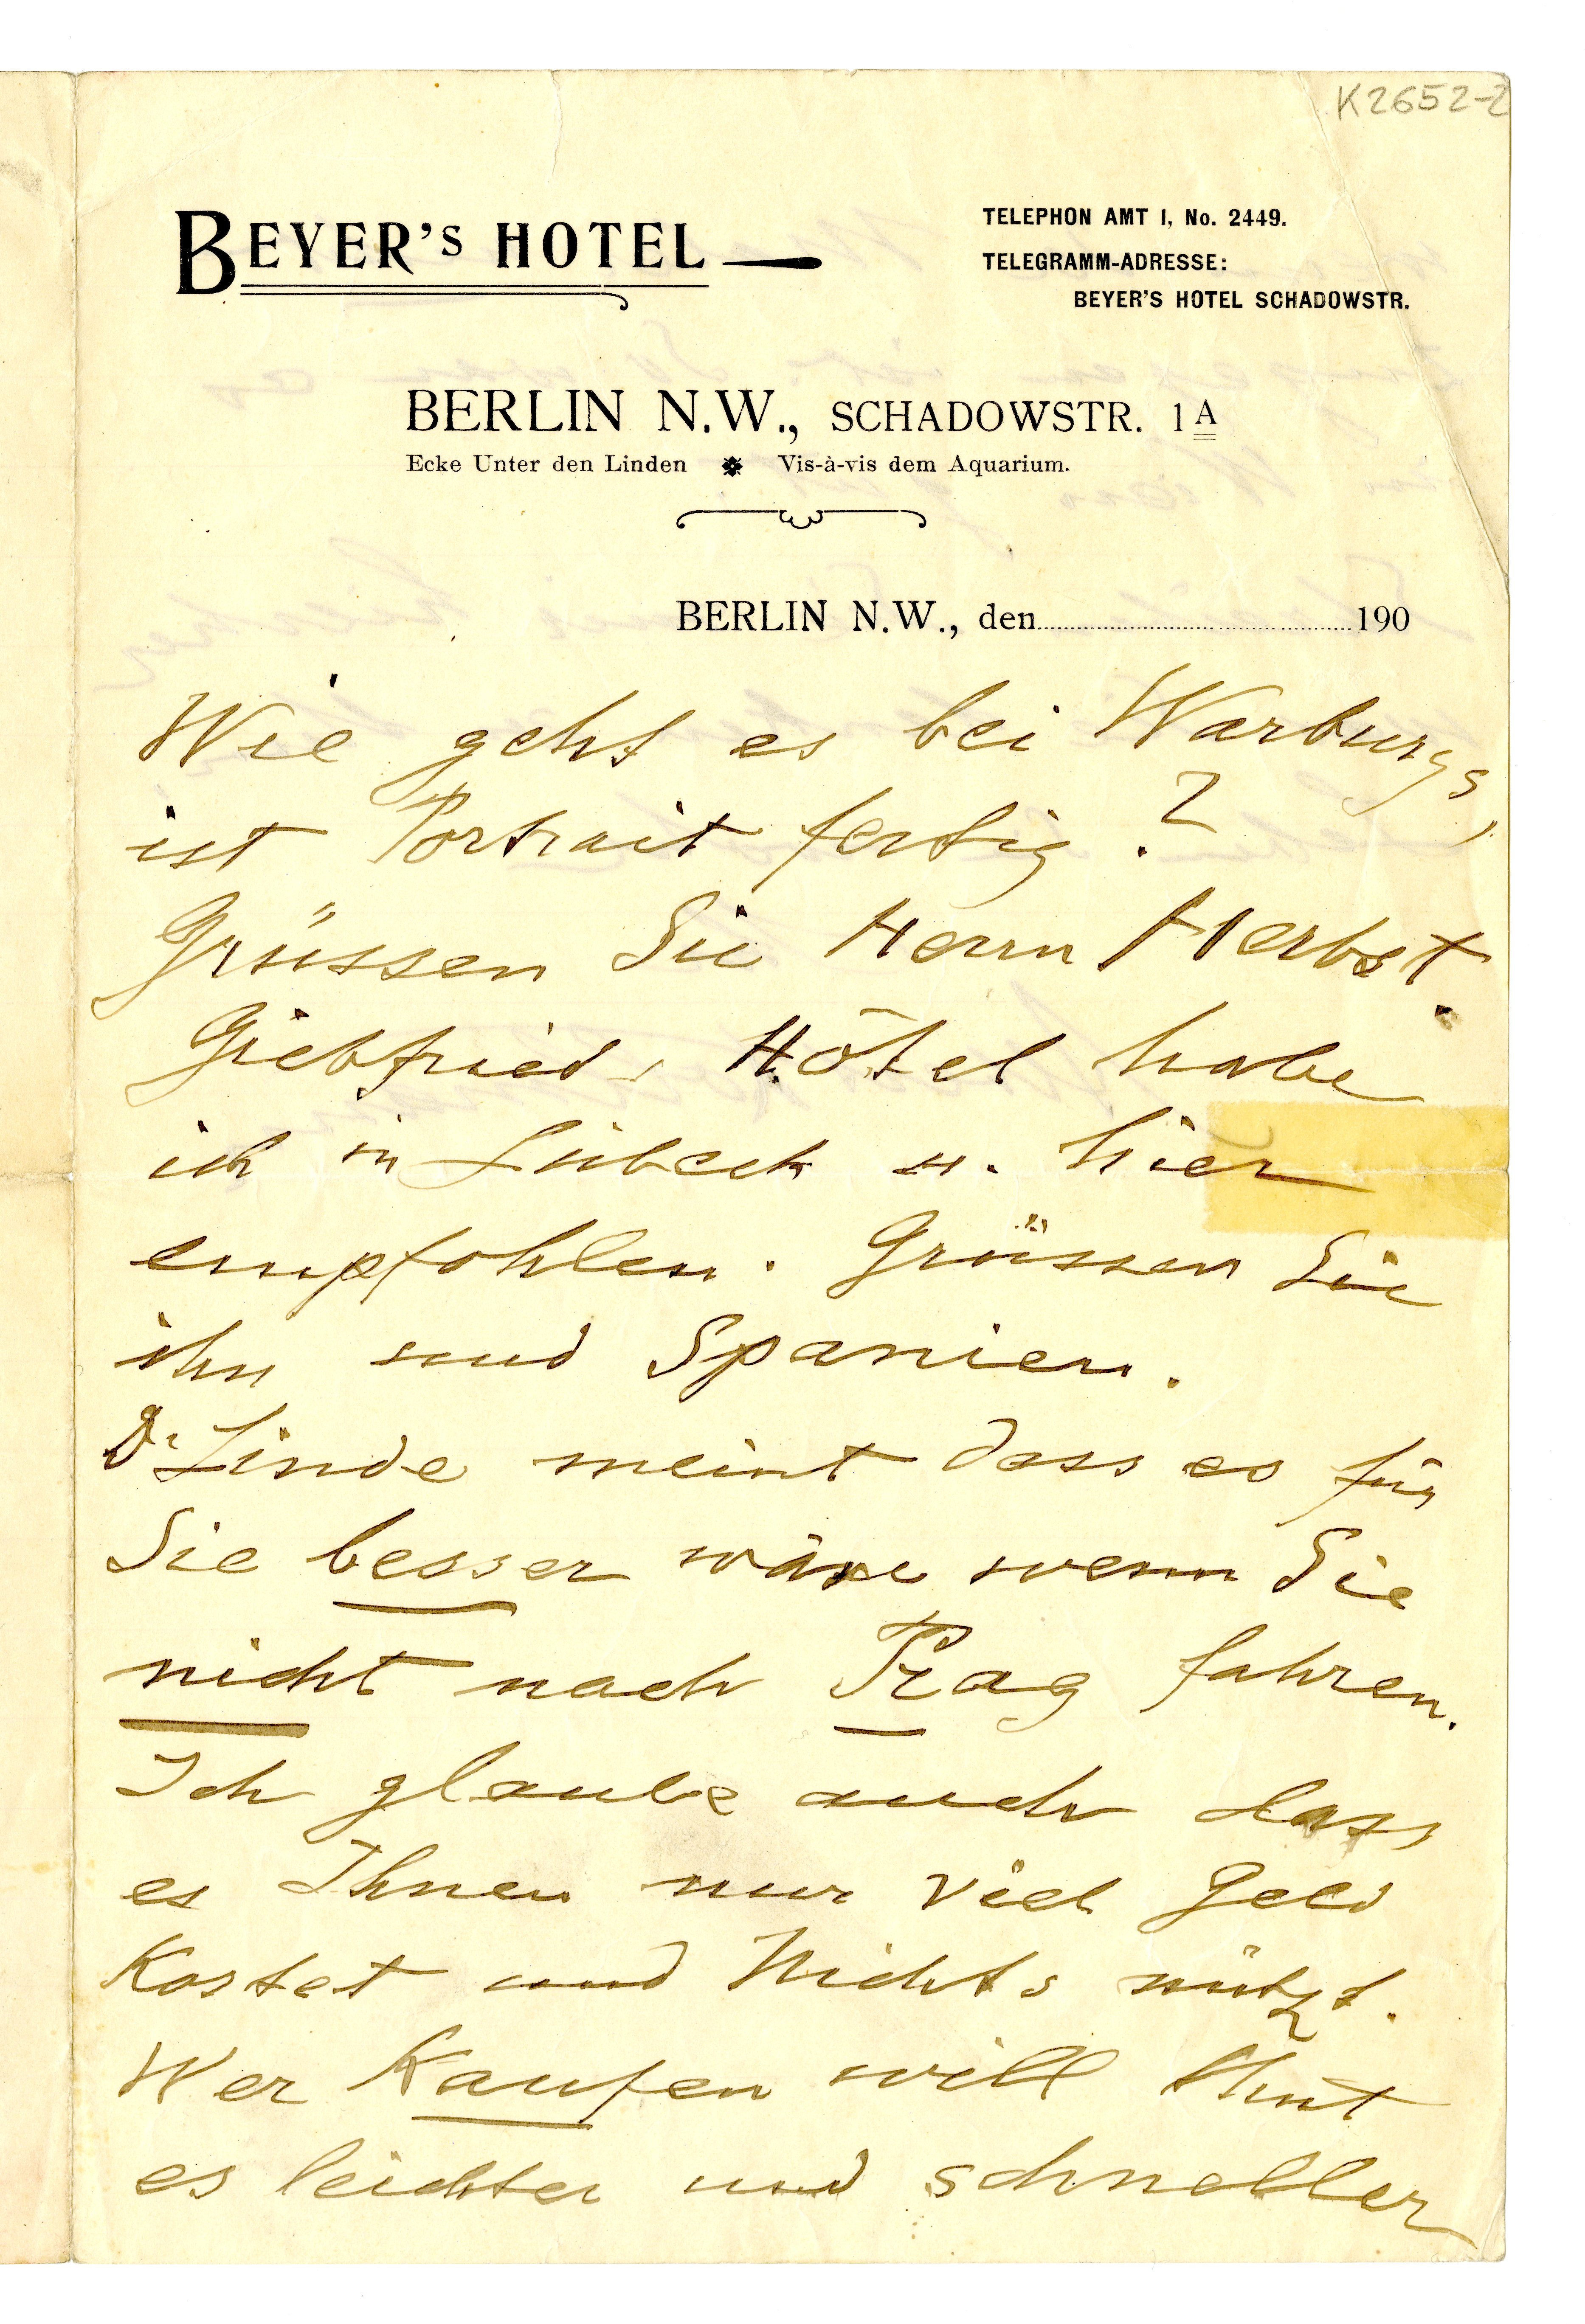 K2652-2
BEYER'S HOTEL
TELEPHON AMT I, No. 2449.
TELEGRAMM-ADRESSE:
BEYER'S HOTEL SCHADOWSTR.
BERLIN N.W., SCHADOWSTR. 1A
Ecke Unter den Linden Vis-à-vis dem Aquarium.
BERLIN N.W., den 190
Wie geht es bei Warburgs,
ist Portrait fertig?
Grüssen Sie Herrn Herbst.
Giebfried's Hôtel habe
ich in Lübeck u. hier
empfohlen. Grüssen Sie
ihn und Spanien.
Dr Linde meint dass es für
Sie besser wäre wenn Sie
nicht nach Prag fahren.
Ich glaube auch dass
es Ihnen nur viel Geld
Kostet und Nichts nützt.
Wer Kaufen will thut
es leichter und schneller